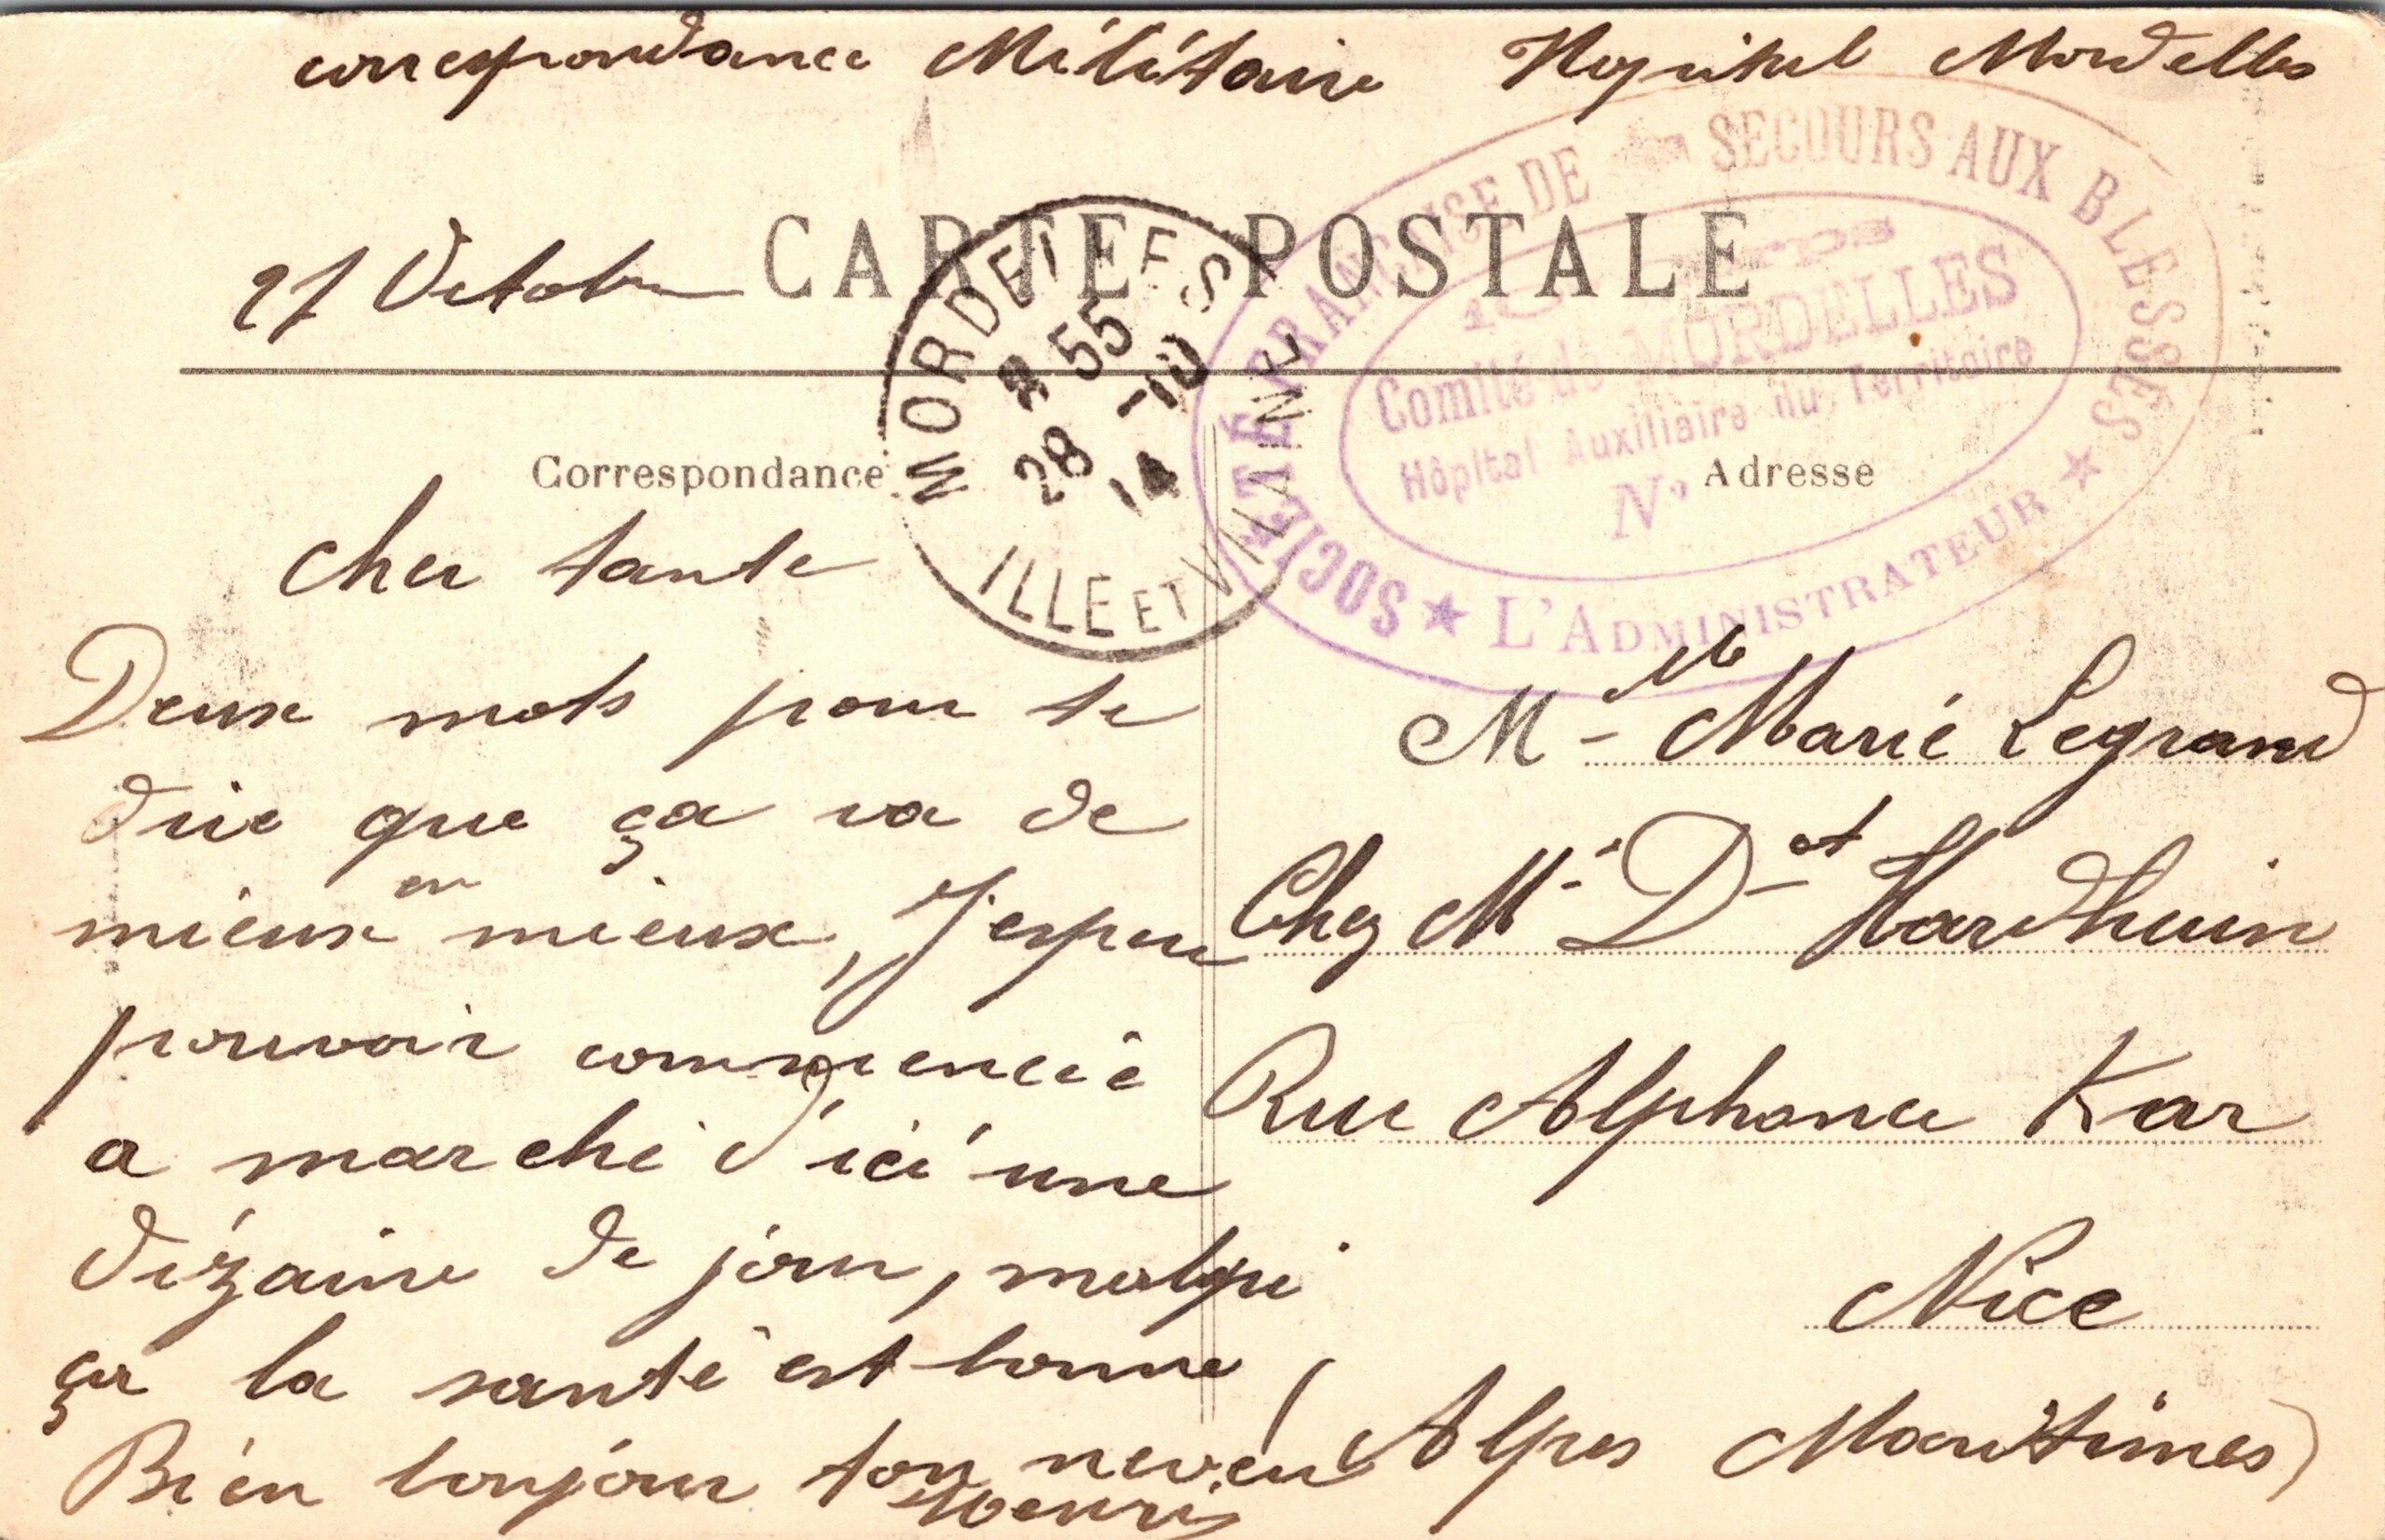 correspondance Militaire Hopital Mordelles
SOCIÉTÉ FRANÇAISE DE SECOURS AUX BLESSÉS
10
Comité de MORDELLES
Hôpital Auxiliaire du Territoire
N°
★ L'ADMINISTRATEUR ★
CARTE POSTALE
27 Octobre
MORDELLES
55
28 -10
14
ILLE ET VILAINE
Correspondance
Adresse
cher tante
Deux mots pour te
dire que ça va de
mieux en mieux, J'espere
pouvoir commencé
a marché d'ici une
dizaine de jour, malgré
ça la santé est bonne
Bien toujour ton neveu
Henri
Mlle Marie Legrand
Chez Mr Dat Hardhuin
Rue Alphonce Kar
Nice
(Alpes Maritimes)